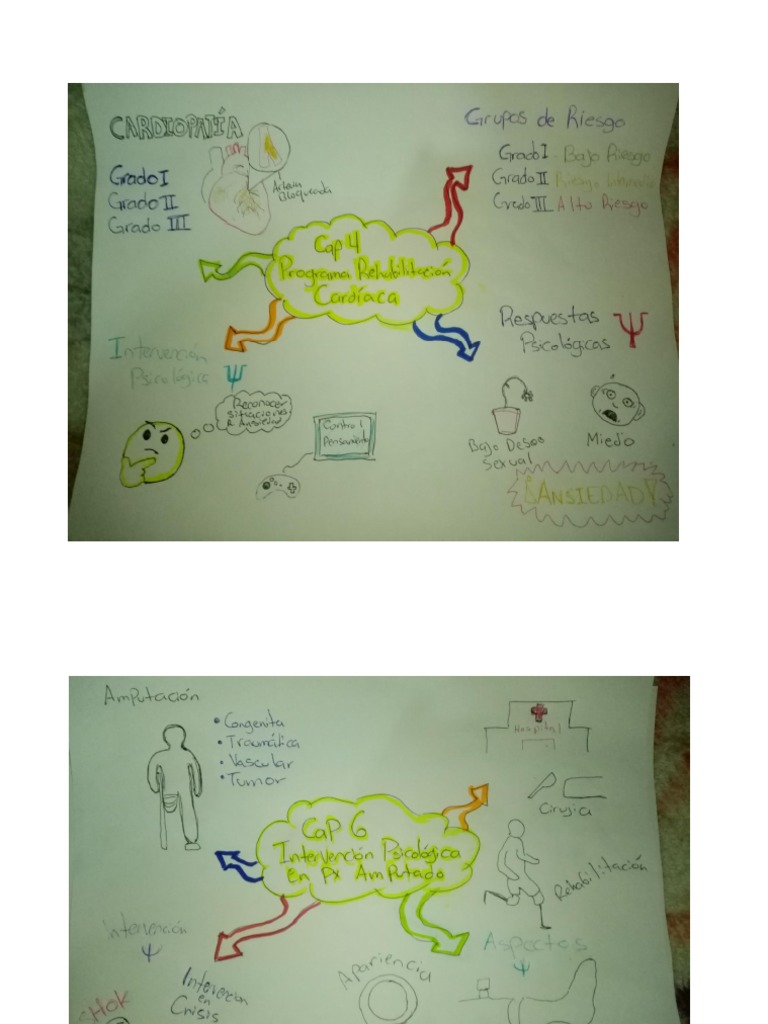 CARDIOPATÍA
Grado I
Grado II
Grado III
Arteria
Bloqueada
Grupos de Riesgo
Grado I Bajo Riesgo
Grado II Riesgo
Grado III Alto Riesgo
Cap 4
Programa Rehabilitación
Cardíaca
Intervención
Psicológica
Reconocer
situaciones
Ansiedad
Control
Pensamiento
Respuestas
Psicológicas
Bajo Deseo
Sexual
Miedo
¡ANSIEDAD!
Amputación
• Congenita
• Traumática
• Vascular
• Tumor
Hospital
Cirujia
Rehabilitación
Cap 6
Intervención Psicológica
En Px Amputado
Intervención
SHOK
Intervencion
en
Crisis
Apariencia
Aspectos